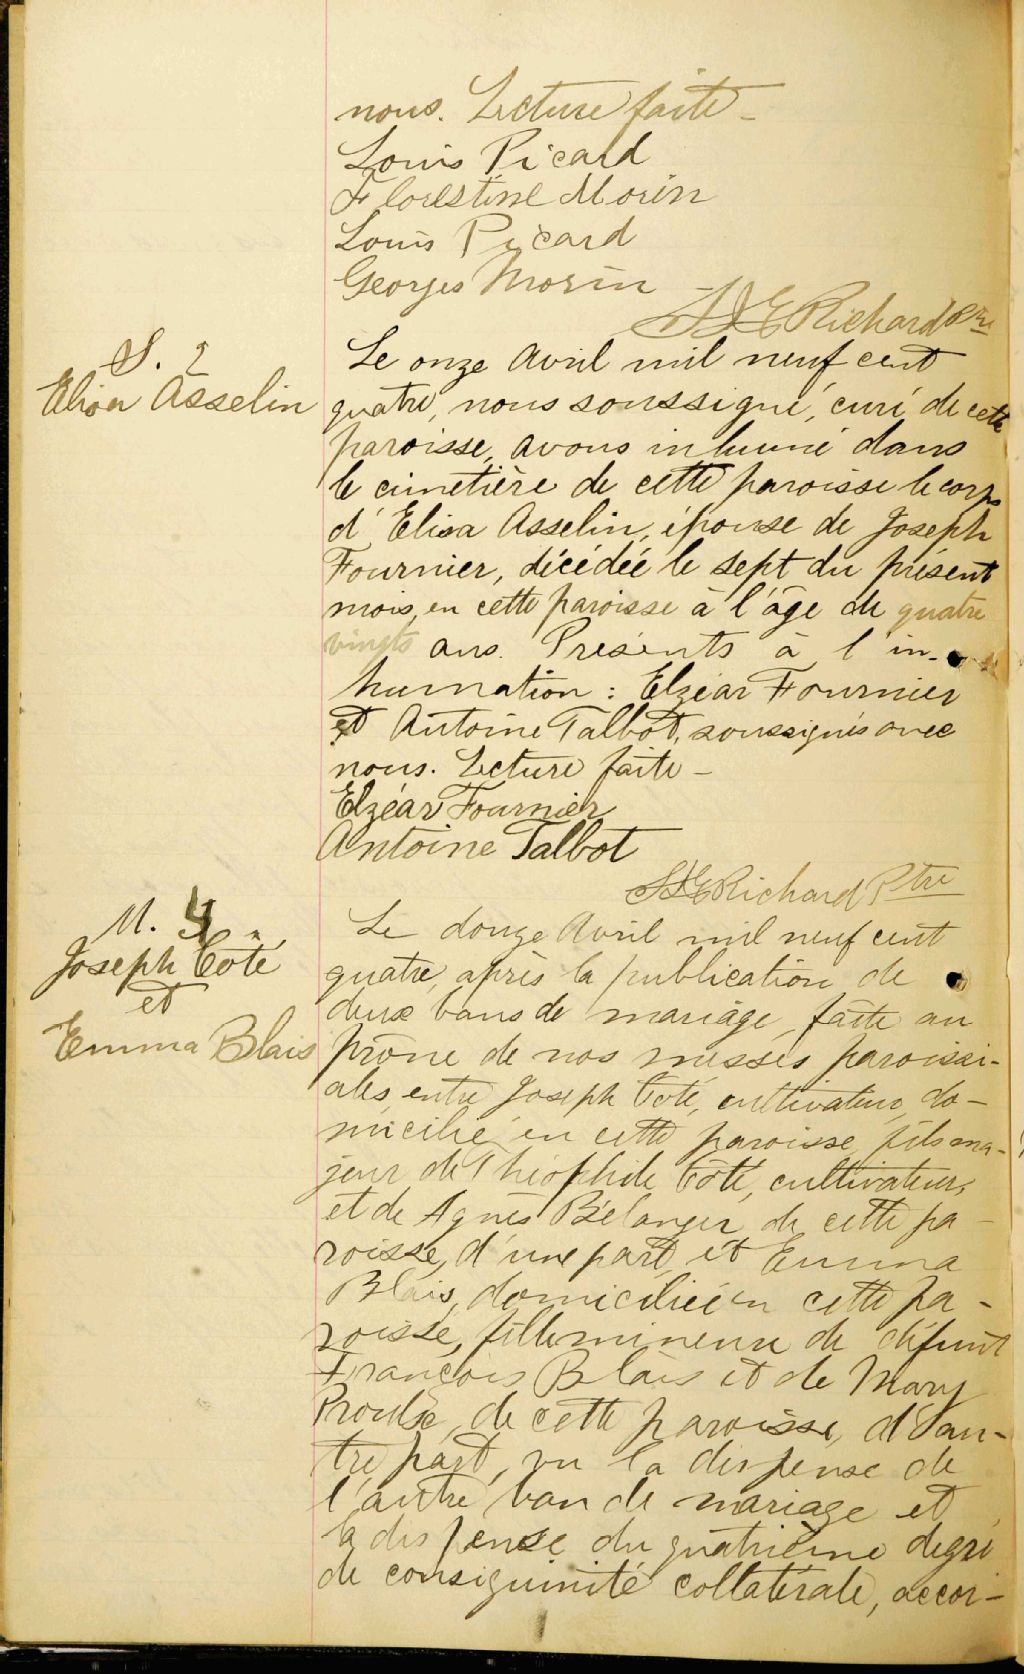 nous. Lecture faite -
Louis Picard
Florestine Morin
Louis Picard
Georges Morin
Richard Ptre
S. 2
Elisa Asselin
Le onze Avril mil neuf cent
quatre, nous soussigné, curé de cette
paroisse, avons inhumé dans
le cimetière de cette paroisse le corps
d'Elisa Asselin, épouse de Joseph
Fournier, décédée le sept du présent
mois, en cette paroisse à l'âge de quatre
vingts ans. Présents à l'in-
humation : Elzéar Fournier
et Antoine Talbot, soussignés avec
nous. Lecture faite -
Elzéar Fournier
Antoine Talbot
Richard Ptre
M. 4
Joseph Côté
et
Emma Blais
Le douze Avril mil neuf cent
quatre, après la publication de
deux bans de mariage, faite au
prône de nos messes paroissi-
ales, entre Joseph Côté, cultivateur, do-
micilié en cette paroisse, fils ma-
jeur de Théophile Côté, cultivateur,
et de Agnès Bélanger de cette pa-
roisse, d'une part, et Emma
Blais, domiciliée en cette pa-
roisse, fille mineure de défunt
François Blais et de Mary
Proulx, de cette paroisse, d'au-
tre part, vu la dispense de
l'autre ban de mariage et
la dispense du quatrième degré
de consiguinité collatérale, accor-